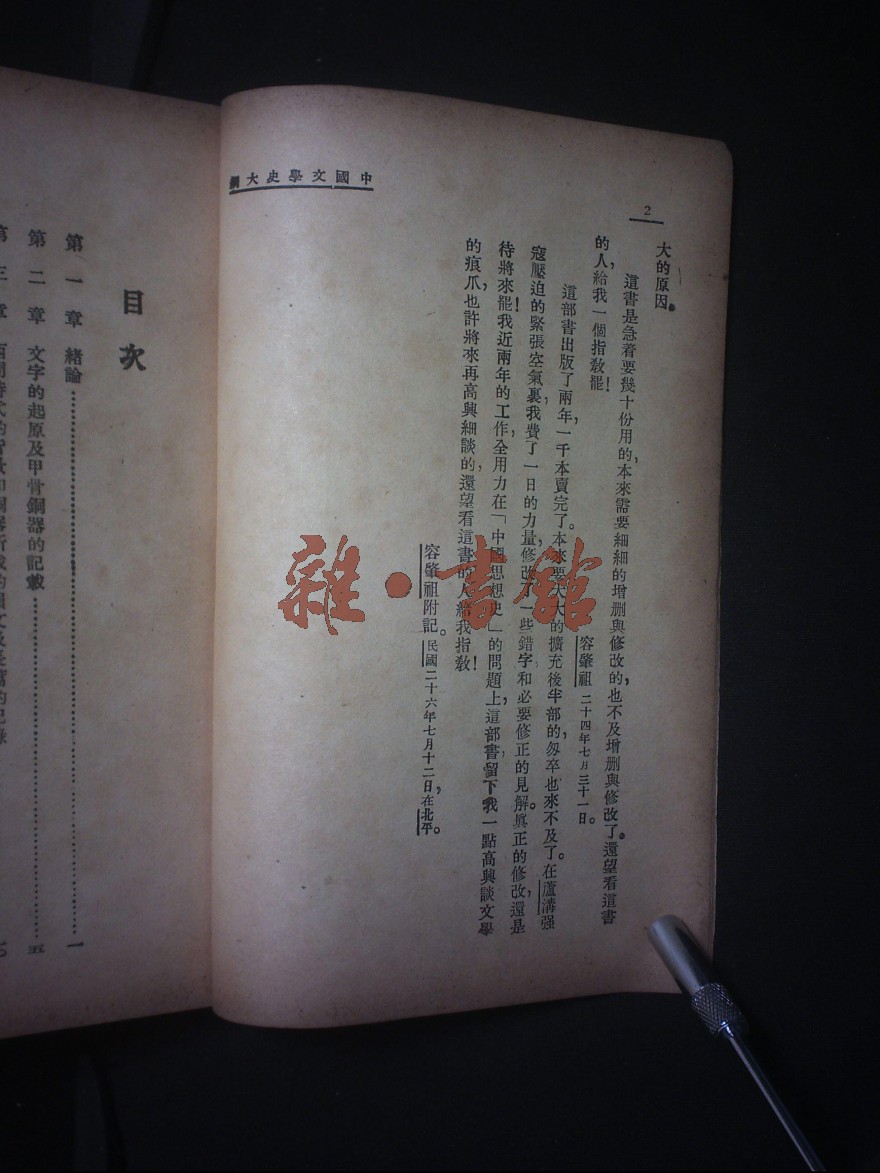 中國文學史大綱
2
大的原因。
這書是急着要幾十份用的，本來需要細細的增刪與修改的，也不及增刪與修改了。還望看這書
的人，給我一個指教罷！
容肇祖 二十四年七月三十一日。
這部書出版了兩年，一千本賣完了。本來要大大的擴充後半部的，匆卒也來不及了。在蘆溝强
寇壓迫的緊張空氣裏，我費了一日的力量，修改了一些錯字和必要修正的見解。眞正的修改，還是
待將來罷！我近兩年的工作，全用力在「中國思想史」的問題上，這部書，留下我一點高興談文學
的痕爪，也許將來再高興細談的，還望看這書的人給我指教！
容肇祖附記。民國二十六年七月十二日，在北平。
雜·書館
目次
第一章 緒論 一
第二章 文字的起原及甲骨銅器的記載 五
第三章